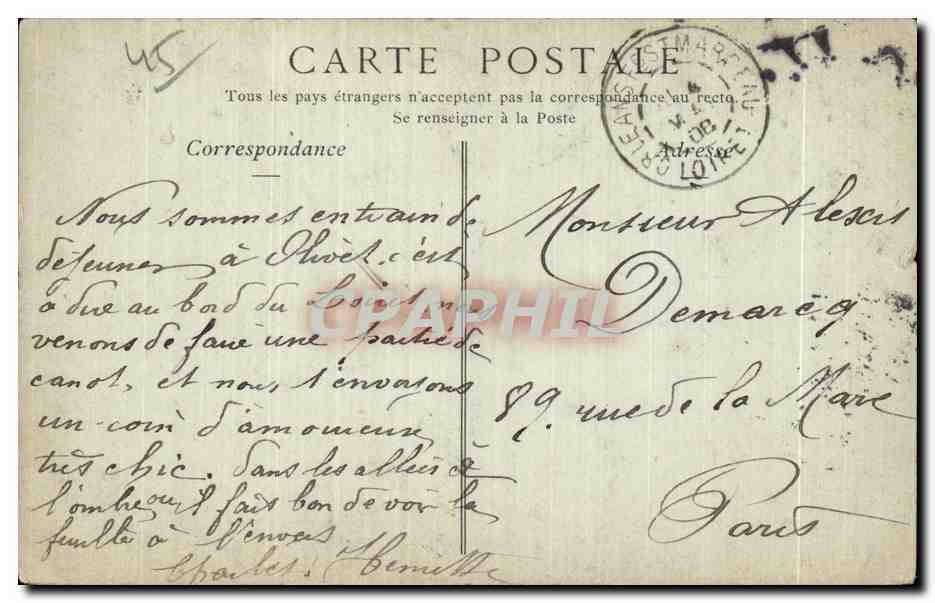 45
CARTE POSTALE
Tous les pays étrangers n'acceptent pas la correspondance au recto.
Se renseigner à la Poste
Correspondance
Adresse
ORLEANS Fg ST MARCEAU
4
08
LOIRET
Nous sommes entrain de
déjeuner à Olivet. c'est
a dire au bord du Loiret nous
venons de faire une partie de
canot, et nous t'envoyons
un coin d'amoureux
très chic. dans les allées à
l'ombre ou il fait bon de voir la
feuille à l'envers
Charles.
Monsieur Alexis
Demarcq
89. rue de la Mare
Paris
CPAPHIL